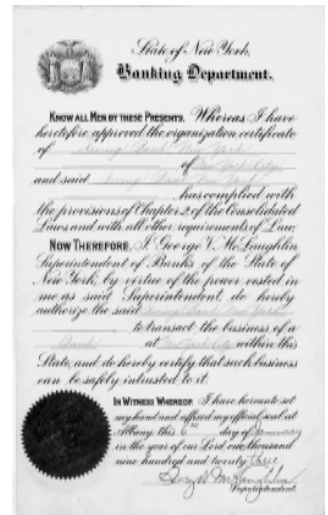 State of New York,
Banking Department.
KNOW ALL MEN BY THESE PRESENTS, Whereas I have
heretofore approved the organization certificate
of Irving Bank New York
of New York City
and said Irving Bank New York
has complied with
the provisions of Chapter 2, of the Consolidated
Laws and with all other requirements of Law.
NOW THEREFORE, I, George V. McLaughlin
Superintendent of Banks of the State of
New York, by virtue of the power vested in
me as said Superintendent, do hereby
authorize the said Irving Bank New York
to transact the business of a
Bank at New York City within this
State, and do hereby certify that such business
can be safely intrusted to it.
IN WITNESS WHEREOF, I have hereunto set
my hand and affixed my official seal at
Albany, this day of January
in the year of our Lord one thousand
nine hundred and twenty three
George V. McLaughlin
Superintendent.